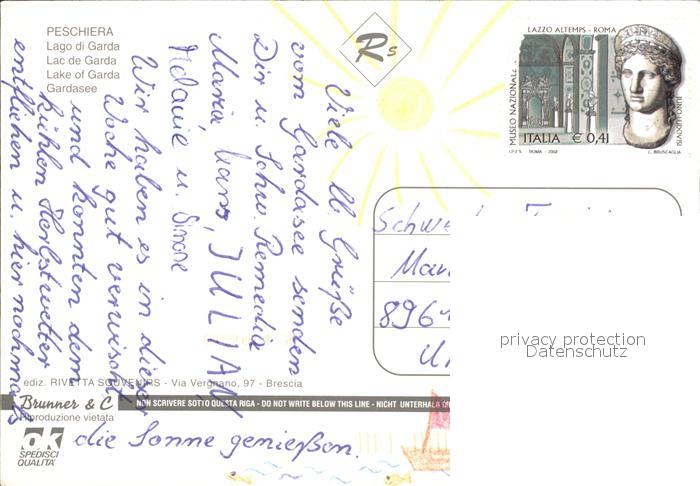 PESCHIERA
Lago di Garda
Lac de Garda
Lake of Garda
Gardasee
Rs
LAZZO ALTEMPS - ROMA
MUSEO NAZIONALE
JUNO LUDOVISI
ITALIA € 0,41
I.P.Z.S. - ROMA - 2002
C. BRUSCAGLIA
Viele ll. Grüße
vom Gardasee senden
Dir u. Schw. Remedia
Maria, Hans, JULIAN,
Melanie u. Simone
Wir haben es in dieser
Woche gut verwischt
und konnten dem
kühlen Herbstwetter
entfliehen u. hier nochmals
die Sonne genießen.
Schwe
Mar
8961
privacy protection
Datenschutz
ediz. RIVETTA SOUVENIRS - Via Vergnano, 97 - Brescia
Brunner & C
NON SCRIVERE SOTTO QUESTA RIGA - DO NOT WRITE BELOW THIS LINE - NICHT UNTERHALB
Riproduzione vietata
ok
SPEDISCI
QUALITÀ